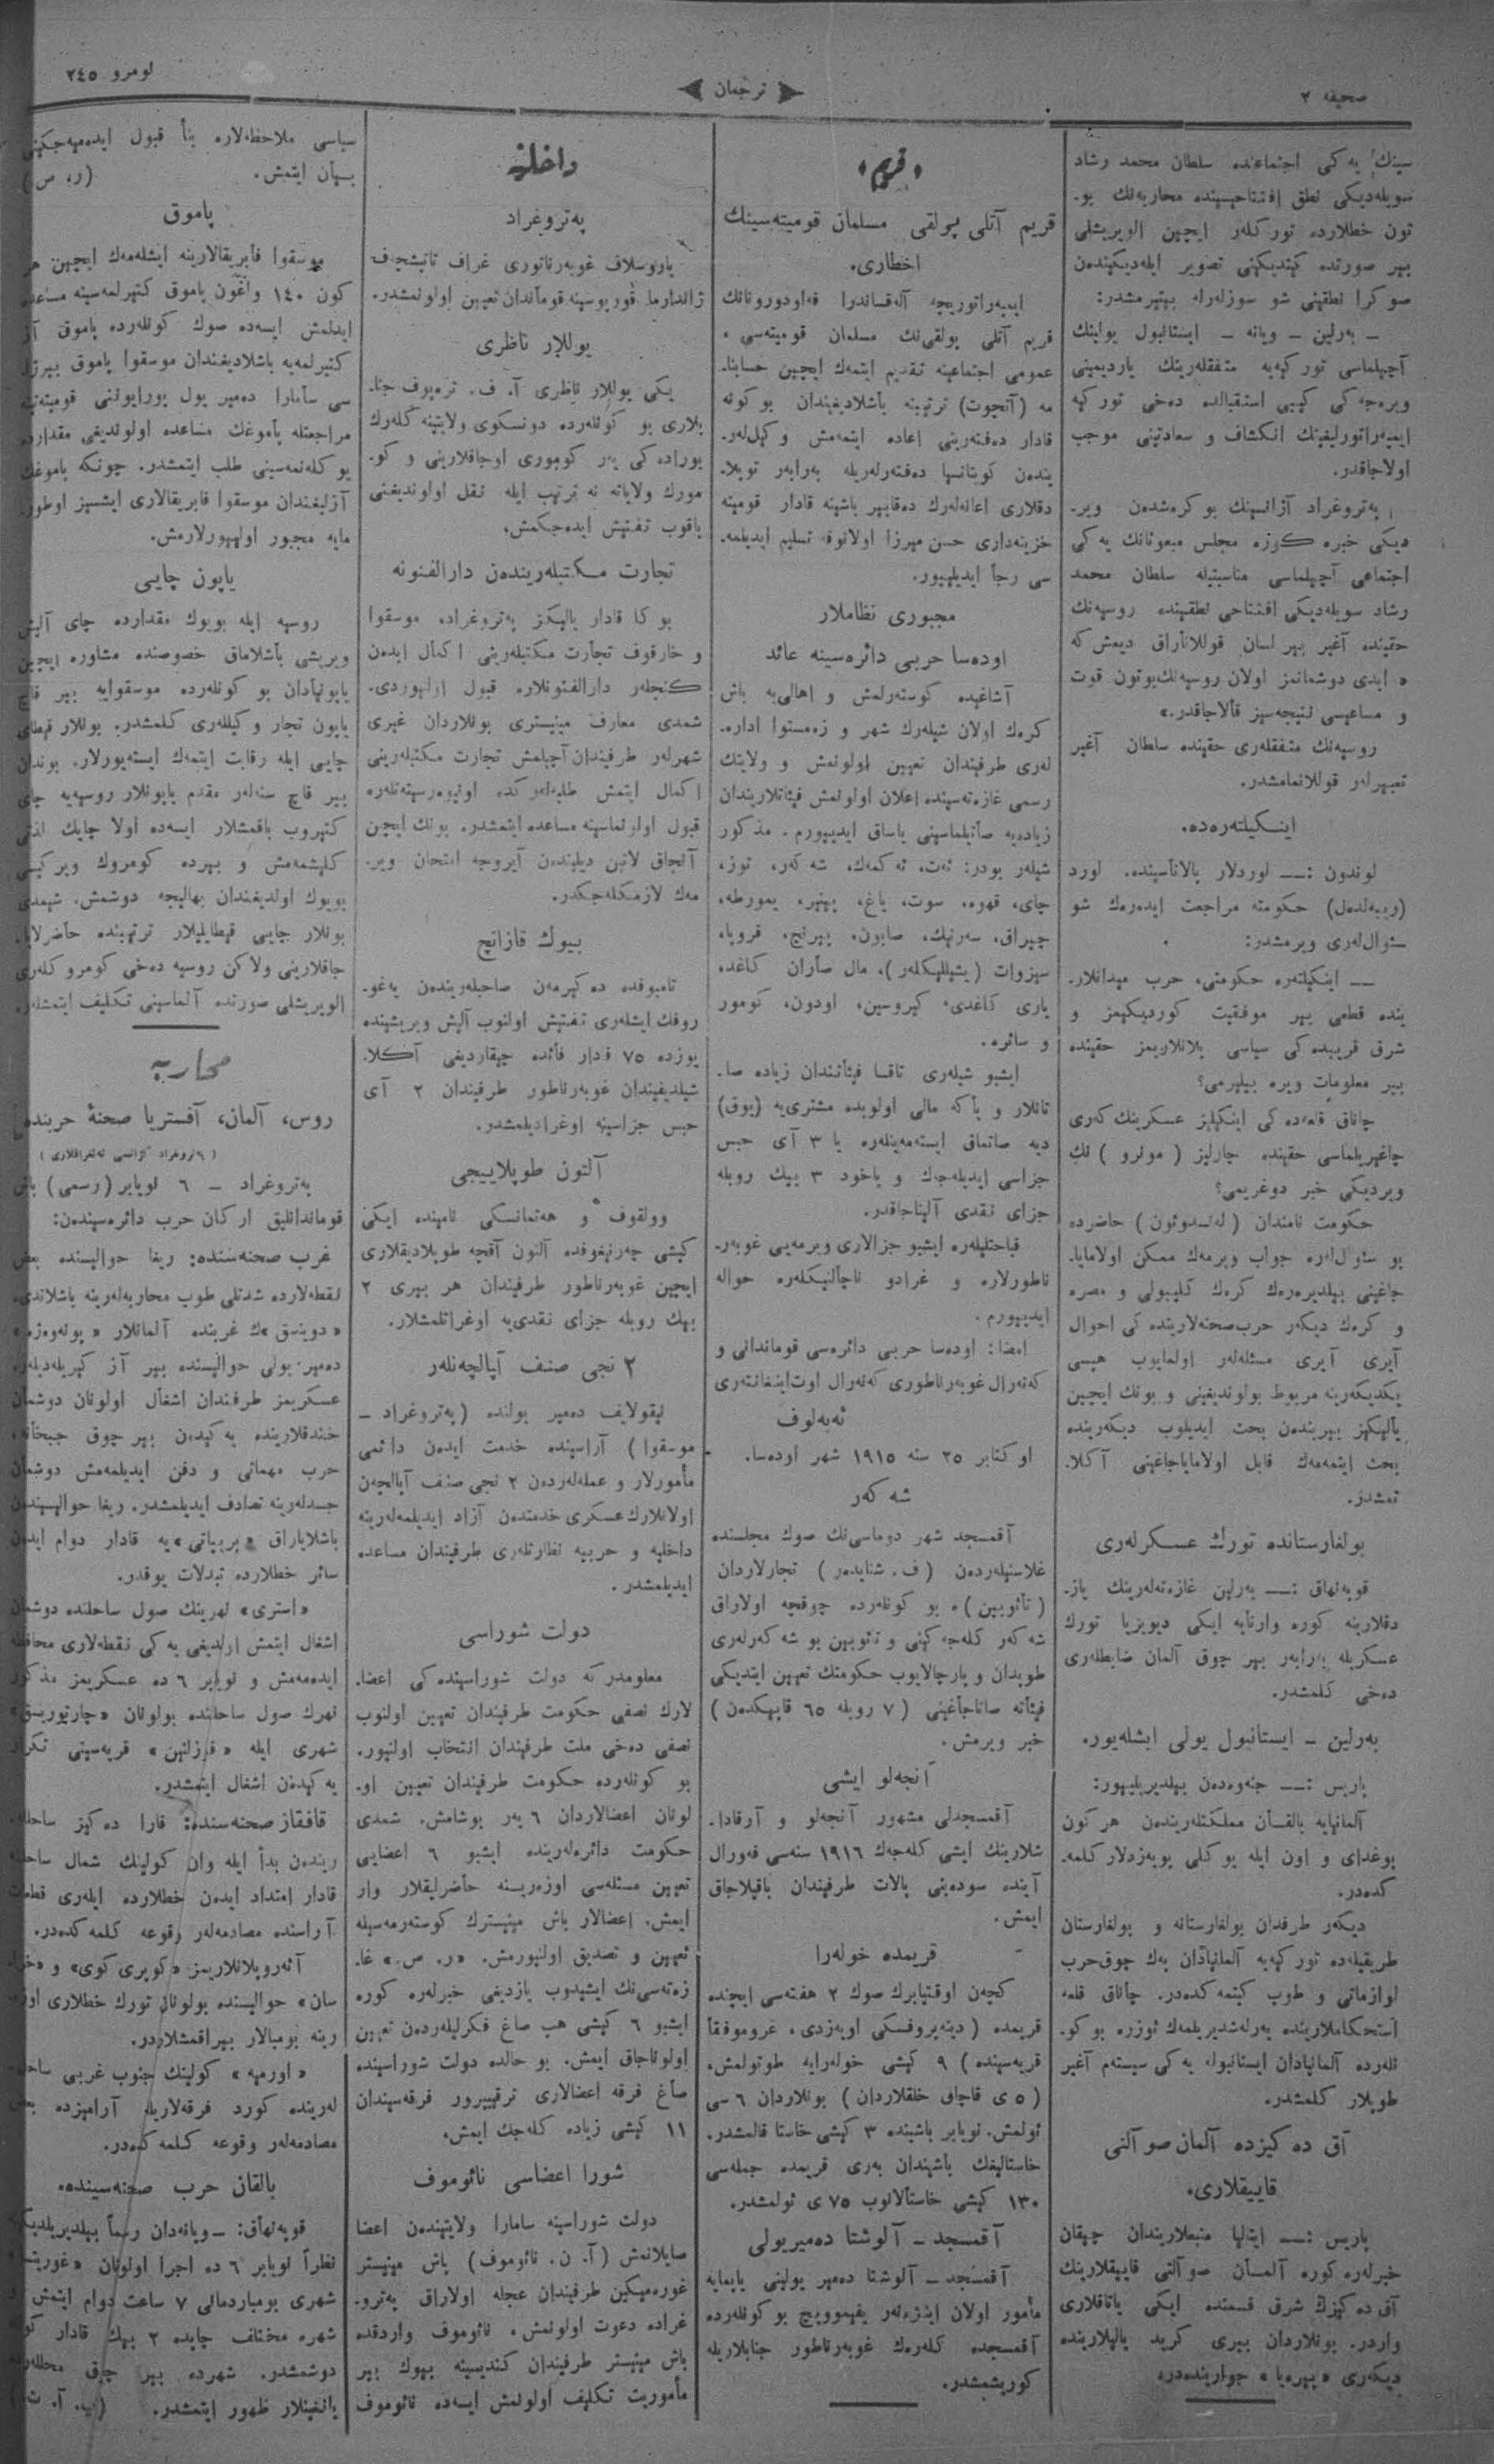 صحیفه ٢
ترجمان
نومرو ٢٤٥
سینك یه كی اجتماعنده سلطان محمد رشاد
سویله‌دیكی نطق افتتاحیسینده محاربه‌نك بو-
تون خطلارده تورکلەر ایچین الویریشلی
بیر صورتده كیتدیكنی تصویر ایله‌دیكیندەن
صوكرا نطقینی شو سوزلەرله بیتیرمشدر:
– بەرلین – ویانه – ایستانبول یولینك
آچیلماسی توركیه‌یه متفقلەرینك یاردیمینی
ویره‌جه كی كیبی استقبالده دەخی توركیه
ایمپەراتورلیغینك انكشاف و سعادتینی موجب
اولاجاقدر.
پەتروغراد آژانسینك بو كرەشدەن ویر-
دیكی خبره كوره مجلس مبعوثانك یه كی
اجتماعی آچیلماسی مناسبتیله سلطان محمد
رشاد سویله‌دیكی افتتاحی نطقینده روسیه‌نك
حقینده آغیر بیر لسان قوللاناراق دیمش كه
« ابدی دوشمانمز اولان روسیه‌نك بوتون قوت
و مساعیسی نتیجه‌سیز قالاجاقدر.»
روسیه‌نك متفقلەری حقینده سلطان آغیر
تعبیرلەر قوللانمامشدر.
اینكیلتەرەده.
لوندون :— لوردلار پالاتاسینده، لورد
حكومته مراجعت ایدەرەك شو
سئوال‌لەری ویرمشدر:
— اینكیلتەره حكومتی، حرب میدانلار-
ینده قطعی بیر موفقیت كوردیكیمز و
شرق قریبده كی سیاسی پلانلاریمز حقینده
بیر معلومات ویره بیلیرمی؟
چاناق قلعه‌ده كی اینكلیز عسكرینك كەری
چاغیریلماسی حقینده چارلیز ( مونرو ) نك
ویردیكی خبر دوغریمی؟
حكومت نامندان ( لەنسدوئون ) حاضرده
بو سئوال‌لەره جواب ویرمەك ممكن اولامایا-
جاغینی بیلدیرەرەك كرەك كلیبولی و مصره
و كرەك دیكەر حرب صحنه‌لارینده كی احوال
آیری آیری مسئله‌لەر اولمایوب هپسی
یكدیكەرینه مربوط بولوندیغینی و بونك ایچین
یالیكیز بیریندەن بحث ایدیلوب دیكەرینده
بحث ایتمه‌مەك قابل اولامایاجاغینی آكلا-
تمشدر.
بولغارستانده تورك عسكرلەری
قوپەنهاق :— بەرلین غازەته‌لەرینك یاز-
دقلارینه كوره وارنایه ایكی دیویزیا تورك
عسكریله برابەر بیر چوق آلمان ضابطلەری
دەخی كلمشدر.
بەرلین – ایستانبول یولی ایشله‌یور.
پاریس :— جنەوەدەن بیلدیریلیور:
آلمانیایه بالقان مملكتلەریندەن هر كون
بوغدای و اون ایله یوكلی پویەزدلار كلمه-
كده‌در.
دیكەر طرفدان بولغارستانه و بولغارستان
طریقیله‌ده توركیه‌یه آلمانیادان پەك چوق حرب
لوازماتی و طوپ كیتمه كده‌در. چاناق قلعه
استحكاملارینده یەرله‌شدیریلمەك ئوزره بو كو-
نلەرده آلمانیادان ایستانبوله یه كی سیستەم آغیر
طوپلار كلمشدر.
آق ده كیزده آلمان صو آلتی
قاییقلاری.
پاریس :— ایتالیا منبعلاریندان چیقان
خبرلەره كوره آلمان صو آلتی قاییقلارینك
آق ده كیزك شرق قسمنده ایكی یاتاقلاری
واردر. بونلاردان بیری كرید یالیلارینده
دیكەری جوارینده‌در
قریم
قریم آتلی پولقی مسلمان قومیته‌سینك
اخطاری.
ایمپەراتوریچه آلەقساندرا فەاودوروفنانك
قریم آتلی پولقی‌نك مسلمان قومیته‌سی ،
عمومی اجتماعینه تقدیم ایتمەك ایچین حسابنا-
مه (آتچوت) ترتیبنه باشلادیغیندان بو كونه
قادار دەفتەرینی اعاده ایتمه‌مش وكیل‌لەر-
یندەن كویتانسیا دەفتەرلەریله برابەر توپلا-
دقلاری اعانه‌لەرك دەقابیر باشینه قادار قومیته
خزینه‌داری حسن میرزا اولانوفه تسلیم ایدیلمه-
سی رجا ایدیلیور.
مجبوری نظاملار
اودەسا حربی دائرەسینه عائد
آشاغیده كوستەرلمش و اهالی‌یه باش
كرەك اولان شیلەرك شهر و زەمستوا اداره-
لەری طرفیندان تعیین اولونمش و ولایتك
رسمی غازەته‌سینده اعلان اولونمش فیئاتلاریندان
زیادەیه صاتیلماسینی یاساق ایدییورم. مذكور
شیلەر بودر: ئەت، ئه كمەك، شه كەر، توز،
چای، قهوه، سوت، یاغ، پینیر، یمورطه،
چیراق، سەرنیك، صابون، پیرنج، قروپا،
سبزوات (یشیللیكلەر)، مال صاران كاغد،
یازی كاغدی، كیروسین، اودون، كومور
و سائره.
ایشبو شیلەری تاقسا فیئاتندان زیاده صا-
تانلار و یا كه مالی اولوبده مشتری‌یه (یوق)
دیه صاتماق ایسته‌مه‌ینلەره یا ٣ آی حبس
جزاسی ایدیله‌جەك و یاخود ٣ بیك روبله
جزای نقدی آلیناجاقدر.
قباحتلیلەره ایشبو جزالاری ویرمه‌یی غوبەر-
ناطورلاره و غرادو ناچالنیكلەره حواله
ایدییورم.
امضا: اودەسا حربی دائرەسی قوماندانی و
كه‌نەرال غوبەرناطوری كه‌نەرال اوت اینفانتەری
ئەبەلوف
اوكتابر ٢٥ سنه ١٩١٥ شهر اودەسا.
شه كەر
آقمسجد شهر دوماسی‌نك صوك مجلسنده
غلاسنیلەردەن ( ف. شنایدەر ) تجارلاردان
بو كونلەرده چوقچه اولاراق
شه كەر كله‌جه كنی و بو شه كەرلەری
طوپدان و پارچالایوب حكومتك تعیین ایتدیكی
فیئاته صاتاجاغینی ( ٧ روبله ٦٥ قاپیكدەن )
خبر ویرمش.
آنجەلو ایشی
آقمسجدلی مشهور آنجەلو و آرقادا-
شلارینك ایشی كله‌جەك ١٩١٦ سنه‌سی فەورال
آینده سودەبنی پالات طرفیندان باقیلاجاق
ایمش.
قریمده خولەرا
كچەن اوقتیابرك صوك ٢ هفته‌سی ایچنده
قریمده ( دینەپروفسكی اویەزدی، غروموفقا
قریه‌سینده ) ٩ كیشی خولەرایه طوتولمش،
( ٥ ی قاچاق خلقلاردان ) بونلاردان ٦ سی
ئولمش. نویابر باشینده ٣ كیشی خاستا قالمشدر.
خاستالیغك باشیندان بەری قریمده جمله‌سی
١٣٠ كیشی خاستالانوب ٧٥ ی ئولمشدر.
آقمسجد – آلوشتا دەمیریولی
آقمسجد – آلوشتا دەمیر یولینی یاپمایه
مأمور اولان اینژەنەر یفیموویچ بو كونلەرده
آقمسجده كلەرەك غوبەرناطور جنابلاریله
كوریشمشدر.
داخلیه
پەتروغراد
یاروسلاف غوبەرناتوری غراف تاتیشچەف
ژاندارما قوریوسینه قوماندان تعیین اولونمشدر.
یوللار ناظری
یكی یوللار ناظری آ. ف. ترەپوف جنا-
بلاری بو كونلەرده دونسكوی ولایتینه كلەرك
بوراده كی یەر كوموری اوجاقلارینی و كو-
مورك ولایاته نه ترتیب ایله نقل اولوندیغینی
باقوب تفتیش ایده‌جكمش.
تجارت مكتبلەریندەن دارالفنونه
بو كا قادار یالیكز پەتروغراد، موسقوا
و خارقوف تجارت مكتبلەرینی اكمال ایدەن
كنجلەر دارالفنونلاره قبول اولیوردی.
شمدی معارف مینیستری بونلاردان غیری
شهرلەر طرفیندان آچیلمش تجارت مكتبلەرینی
اكمال ایتمش طلبه‌لەركده اونیوەرسیته‌تلەره
قبول اولونماسینه مساعده ایتمشدر. بونك ایچین
آنجاق لاتین دیلیندەن آیروجه امتحان ویر-
مەك لازمكله‌جكدر.
بیوك قازانچ
تامبوفده ده كیرمەن صاحبلەریندەن یەغو-
روفك ایشلەری تفتیش اولنوب آلیش ویریشینده
یوزده ٧٥ قدار فائده چیقاردیغی آكلا-
شیلدیغیندان غوبەرناطور طرفیندان ٢ آی
حبس جزاسینه اوغرادیلمشدر.
آلتون طوپلاییجی
وولقوف و هەتمانسكی نامینده ایكی
كیشی چەرنیغوفده آلتون آقچه طوپلادیقلاری
ایچین غوبەرناطور طرفیندان هر بیری ٢
بیك روبله جزای نقدی‌یه اوغراتلمشلار.
٢ نجی صنف آپالچەنلەر
نیقولایف دەمیر یولنده (پەتروغراد –
موسقوا) آراسینده خدمت ایدەن دائمی
مأمورلار و عمله‌لەردەن ٢ نجی صنف آپالچەن
اولانلارك عسكری خدمتدەن آزاد ایدیلمه‌لەرینه
داخلیه و حربیه نظارتلەری طرفیندان مساعده
ایدیلمشدر.
دولت شوراسی
معلومدر كه دولت شوراسینده كی اعضا-
لارك نصفی حكومت طرفیندان تعیین اولنوب
نصفی دەخی ملت طرفیندان انتخاب اولنیور.
بو كونلەرده حكومت طرفیندان تعیین او-
لونان اعضالاردان ٦ یەر بوشامش. شمدی
حكومت دائرەلەرینده ایشبو ٦ اعضایی
تعیین مسئله‌سی اوزەرینه حاضرلیقلار وار
ایمش. اعضالار باش مینیسترك كوستەرمه‌سیله
تعیین و تصدیق اولنیورمش. «ر. ص.» غا-
زەته‌سی‌نك ایشیدوب یازدیغی خبرلەره كوره
ایشبو ٦ كیشی هپ صاغ فكرلیلەردەن تعیین
اولوناجاق ایمش. بو حالده دولت شوراسینده
صاغ فرقه اعضالاری ترقیپرور فرقه‌سیندان
١١ كیشی زیاده كله‌جك ایمش.
شورا اعضاسی نائوموف
دولت شوراسینه سامارا ولایتیندەن اعضا
صایلانمش (آ. ن. نائوموف) باش مینیستر
غورەمیكین طرفیندان عجله اولاراق پەترو-
غراده دعوت اولونمش، نائوموف واردقده
باش مینیستر طرفیندان كندیسینه بیوك بیر
مأموریت تكلیف اولونمش ایسه‌ده نائوموف
سیاسی ملاحظه‌لاره بنأ قبول ایده‌میه‌جكینی
بیان ایتمش. (ر. ص.)
پاموق
موسقوا فابریقالارینه ایشله‌مەك ایچین هر
كون ١٤٠ واغون پاموق كتیرلمه‌سینه مساعده
ایدلمش ایسه‌ده صوك كونلەرده پاموق آز
كتیرلمه‌یه باشلادیغندان موسقوا پاموق بیرژا-
سی سامارا دەمیر یول بورایوننی قومیته‌تینه
مراجعتله پاموغك مساعده اولوندیغی مقدارده
یوكله‌نمه‌سینی طلب ایتمشدر. چونكه پاموغك
آزلیغندان موسقوا فابریقالاری ایشسیز اوطور-
مایه مجبور اولییورلارمش.
یاپون چایی
روسیه ایله بویوك مقدارده چای آلیش
ویریشی باشلاماق خصوصنده مشاوره ایچین
یاپونیادان بو كونلەرده موسقوایه بیر قاچ
یاپون تجار وكیللەری كلمشدر. بونلار قیطای
چایی ایله رقابت ایتمەك ایسته‌یورلار. بوندان
بیر قاچ سنه‌لەر مقدم یاپونلار روسیه‌یه چای
كتیروب باقمشلار ایسه‌ده اولا چاینك لذتی
كلیشمه‌مش و بیرده كومروك ویركیسی
بویوك اولدیغندان بهالیجه دوشمش. شیمدی
بونلار چایی قیطایلیلار ترتیبنده حاضرلایا-
جاقلارینی ولاكن روسیه دەخی كومروكلەری
الویریشلی صورتده آلماسینی تكلیف ایتمشلەر.
محاربه
روس، آلمان، آفستریا صحنهٔ حربنده
( پەتروغراد آژانسی تەلغرافلاری )
پەتروغراد – ٦ نویابر (رسمی) باش
قوماندانلیق اركان حرب دائرەسیندەن:
غرب صحنه‌سنده: ریغا حوالیسنده بعض
نقطه‌لارده شدتلی طوپ محاربه‌لەرینه باشلاندی.
«دوینسق»ك غربنده آلمانلار «پونەوەژ»
دەمیر یولی حوالیسنده بیر آز كیریله‌دیلەر.
عسكریمز طرفندان اشغال اولونان دوشمان
خندقلارینده یه كیدەن بیر چوق جبخانه،
حرب مهماتی و دفن ایدیلمه‌مش دوشمان
جسدلەرینه تصادف ایدیلمشدر. ریغا حوالیسیندەن
باشلایاراق «پریپیاتی»یه قادار دوام ایدەن
سائر خطلارده تبدلات یوقدر.
«استری» نهرینك صول ساحلنده دوشمان
اشغال ایتمش اولدیغی یه كی نقطه‌لاری محافظه
ایده‌مه‌مش و نویابر ٦ ده عسكریمز مذكور
نهرك صول ساحلنده بولونان «چارتوریسق»
شهری ایله قریه‌سینی تكرار
یه كیدەن اشغال ایتمشدر.
قافقاز صحنه‌سنده: قارا ده كیز ساحلله-
ریندەن بدأ ایله وان كولینك شمال ساحلنه
قادار امتداد ایدەن خطلارده ایلەری قطعات
آراسنده مصادمه‌لەر وقوعه كلمه كده‌در.
آئەروپلانلاریمز «كوپری كوی» و
حوالیسنده بولونان تورك خطلاری اوزه-
رینه بومبالار بیراقمشلاردر.
«اورمیه» كولینك جنوب غربی ساحل-
لەرینده كورد فرقه‌لاریله آرامیزده بعض
مصادمه‌لەر وقوعه كلمه كده‌در.
بالقان حرب صحنه‌سینده.
قوپەنهاق: – ویانه‌دان رسماً بیلدیریلدیكینه
نظراً نویابر ٦ ده اجرا اولونان
شهری بومباردمانی ٧ ساعت دوام ایتمش و
شهره مختلف چاپده ٢ بیك قادار
دوشمشدر. شهرده بیر چوق محللەرده
یانغینلار ظهور ایتمشدر. (پ. آ. ت.)